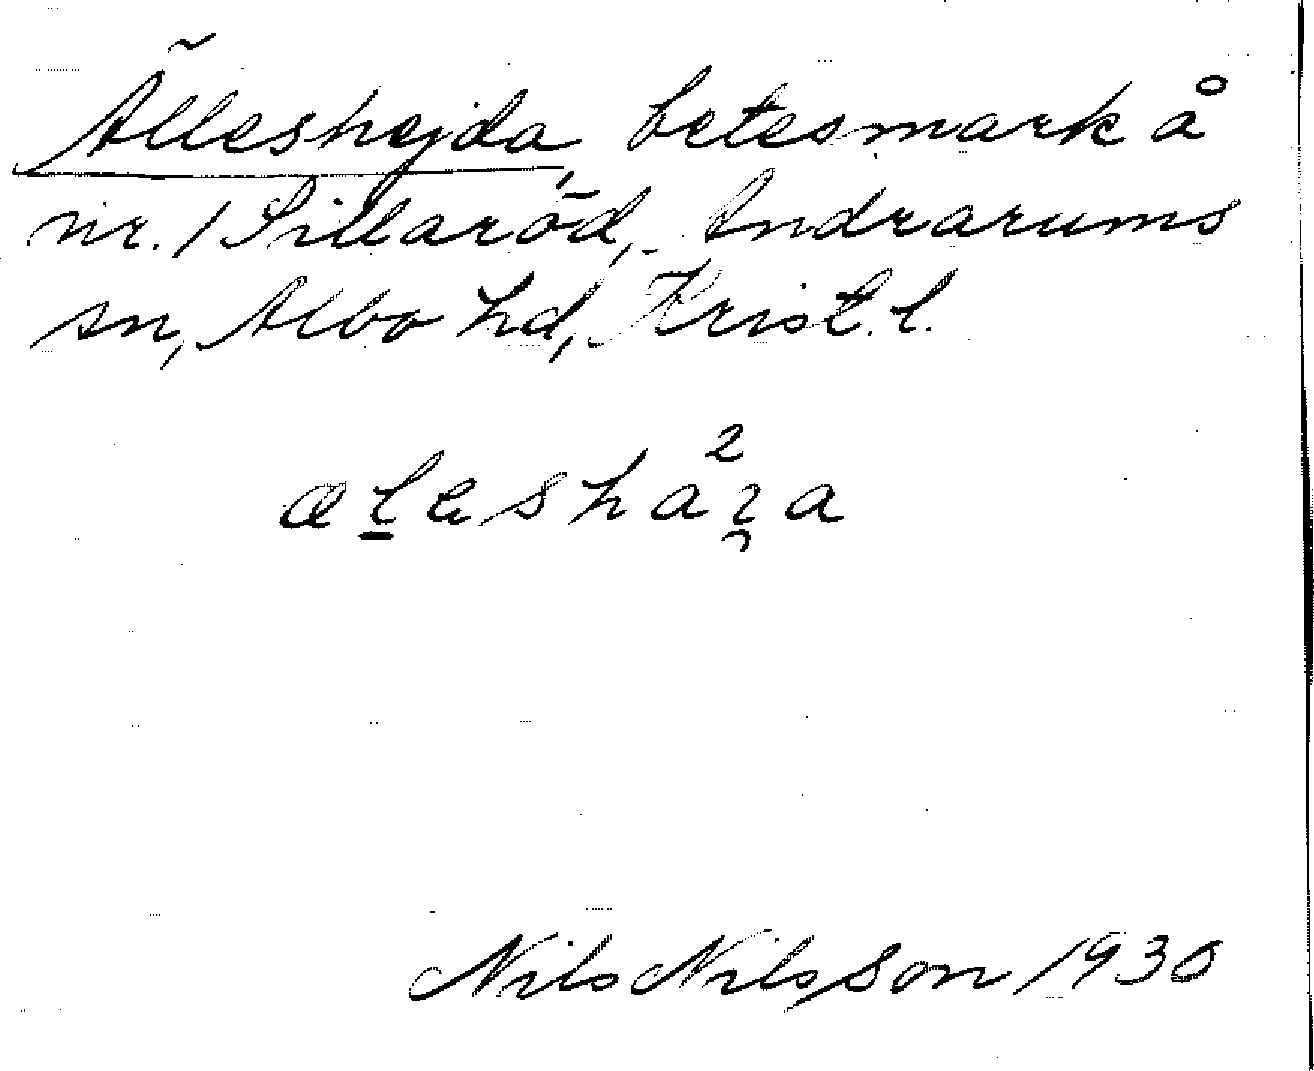 Älleshejda, betesmark å
nr. 1 Sillaröd, Andrarums
sn, Albo hd, Krist. l.
Nils Nilsson 1930